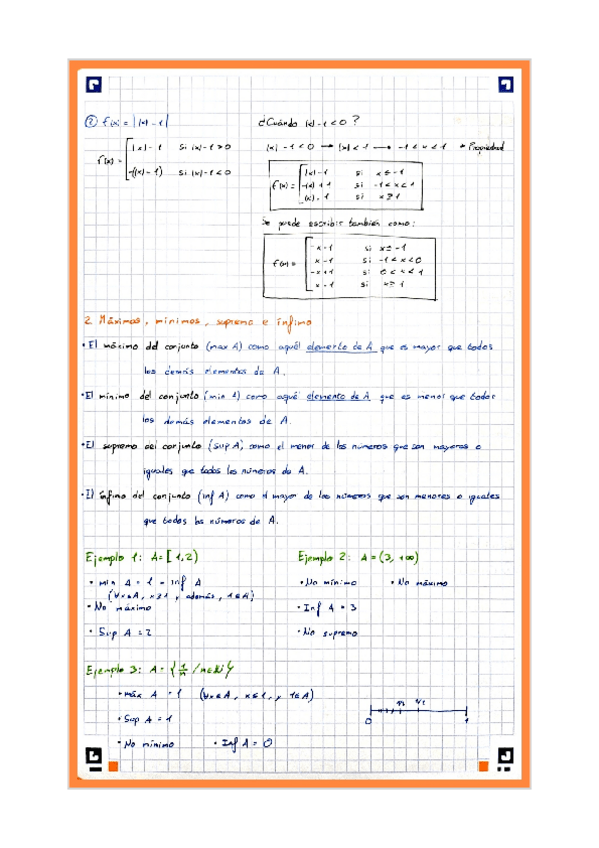 ② f(x) = |(x)-1|
f(x) = |x|-1 si |x|-1>0
-(|x|-1) si |x|-1<0
¿Cuándo |x|-1<0?
|x|-1<0 → |x|<1 → -1<x<1 → Propiedad
f(x) = |x|-1 si x≤-1
-|x|+1 si -1<x<1
|x|-1 si x≥1
Se puede escribir también como:
f(x) = -x-1 si x≤-1
x-1 si -1<x<0
-x+1 si 0<x<1
x-1 si x≥1
2. Máximos, mínimos, suprema e ínfimo
• El máximo del conjunto (max A) como aquél elemento de A que es mayor que todos
los demás elementos de A.
• El mínimo del conjunto (min A) como aquél elemento de A que es menor que todos
los demás elementos de A.
• El supremo del conjunto (sup A), como el menor de los números que son mayores o
iguales que todos los números de A.
• El ínfimo del conjunto (inf A) como el mayor de los números que son menores o iguales
que todos los números de A.
Ejemplo 1: A=[1,2)
• min A = 1 = inf A
(∀x∈A, x≥1 y además, 1∈A)
• No máximo
• Sup A = 2
Ejemplo 2: A = (3, +∞)
• No mínimo • No máximo
• Inf A = 3
• No supremo
Ejemplo 3: A = {1/n / n∈ℕ}
• máx A = 1 (∀x∈A, x≤1, y 1∈A)
• Sup A = 1
• No mínimo • Inf A = 0
1/3 1/2
0 1